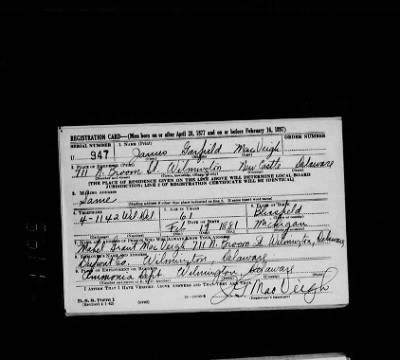 REGISTRATION CARD—(Men born on or after April 28, 1877 and on or before February 16, 1897)
SERIAL NUMBER 1. NAME (Print) ORDER NUMBER
U 947 James Garfield MacVeigh
711 N. Broom St Wilmington New Castle Delaware
(THE PLACE OF RESIDENCE GIVEN ON THE LINE ABOVE WILL DETERMINE LOCAL BOARD
JURISDICTION; LINE 2 OF REGISTRATION CERTIFICATE WILL BE IDENTICAL)
3. MAILING ADDRESS
Same
4. TELEPHONE 5. AGE IN YEARS 6. PLACE OF BIRTH
4-1142 Wil Del 61 Blissfield
Feb 1881 Michigan
7. NAME AND ADDRESS OF PERSON WHO WILL ALWAYS KNOW YOUR ADDRESS
Mabel MacVeigh 711 N. Broom St Wilmington, Delaware
Dupont Co. Wilmington, Delaware
9. PLACE OF EMPLOYMENT OR BUSINESS
Ammonia Dept Wilmington Delaware
I AFFIRM THAT I HAVE VERIFIED ABOVE ANSWERS AND THAT THEY ARE TRUE.
D. S. S. Form 1
MacVeigh